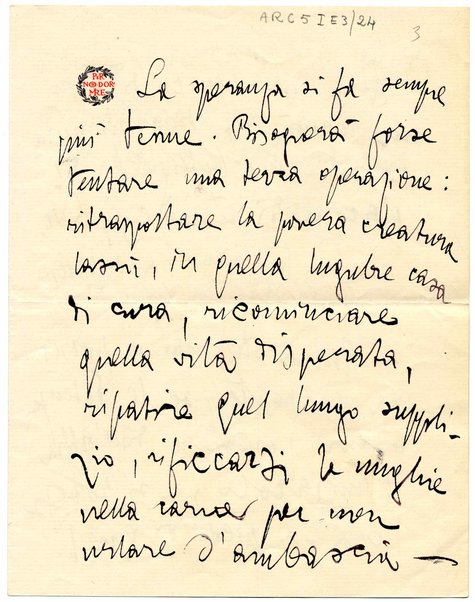 ARC 5 I E 3/24
3
PER
NON DOR
MIRE
La speranza si fa sempre
più tenue. Bisognerà forse
tentare una terza operazione:
ritrasportare la povera creatura
lassù, in quella lugubre casa
di cura, ricominciare
quella vita disperata,
ripatire quel lungo suppli-
zio, rificcarsi le unghie
nella carne per non
urlare d'ambascia —